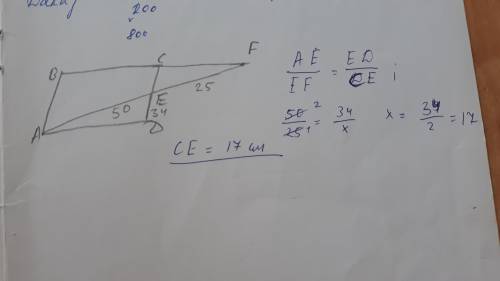 200
800
B C F
A E D
50 25 34
AE/EF = ED/CE ;
50/25 2/1 = 34/x x = 34/2 = 17
CE = 17 см